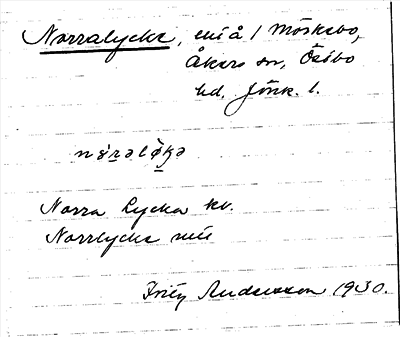 Norralycke, enl å / Möskebo,
Åkers sn, Östbo
hd. Jönk. l.
Norra Lycka kv.
Norrlycke
Fritz Andersson 1930.